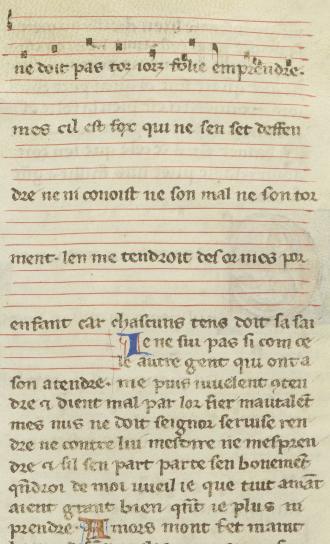 ne doit pas toz iorz folie emprendre.
mes cil est fox qui ne sen set deffen
dre ne ni conoist ne son mal ne son tor
ment. len me tendroit desormes por
enfant car chascuns tens doit sa sai
Ie ne sui pas si com ce
le autre gent qui ont a
son atendre. me puis iuuelent
dre et dient mal par lor fier mautalent
mes nus ne doit seignor seruise ren
dre ne contre lui mesdire ne mespren
dre et sil sen part parte sen bonement
qndroi de moi vueil ie que tuit amant
aient grant bien qnt ie plus ni
prendre. Amors mont fet maint